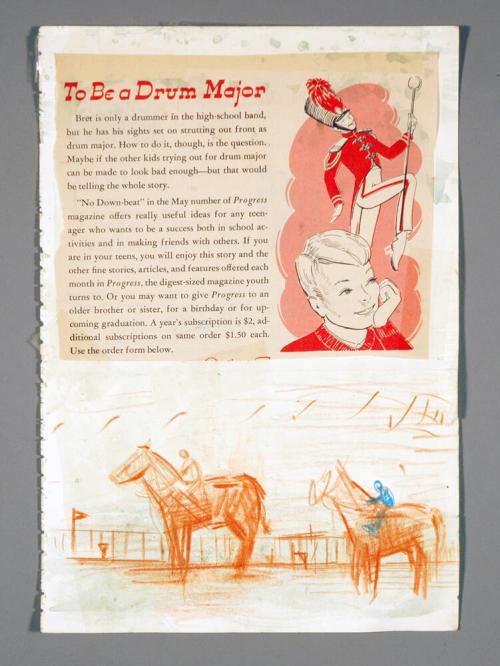 To Be a Drum Major
Bret is only a drummer in the high-school band,
but he has his sights set on strutting out front as
drum major. How to do it, though, is the question.
Maybe if the other kids trying out for drum major
can be made to look bad enough—but that would
be telling the whole story.
"No Down-beat" in the May number of Progress
magazine offers really useful ideas for any teen-
ager who wants to be a success both in school ac-
tivities and in making friends with others. If you
are in your teens, you will enjoy this story and the
other fine stories, articles, and features offered each
month in Progress, the digest-sized magazine youth
turns to. Or you may want to give Progress to an
older brother or sister, for a birthday or for up-
coming graduation. A year's subscription is $2, ad-
ditional subscriptions on same order $1.50 each.
Use the order form below.